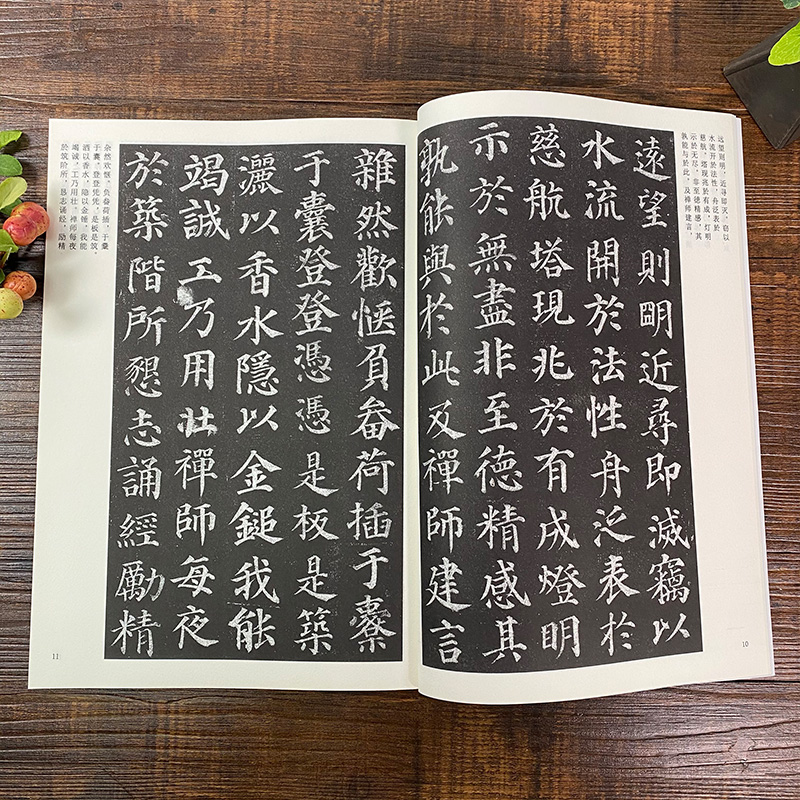 远望则明，近寻即灭，窃以
水流开於法性，舟泛表於
慈航，塔现兆於有成，灯明
示於无尽，非至德精感，其
孰能与於此，及禅师建言，
遠望則明近尋即滅竊以
水流開於法性舟泛表於
慈航塔現兆於有成燈明
示於無盡非至德精感其
孰能與於此及禪師建言
10
雜然歡愜負畚荷插于橐
于囊登登憑憑是板是築
灑以香水隱以金鎚我能
竭誠工乃用壯禪師每夜
於築階所懇志誦經勵精
杂然欢惬，负畚荷插，于橐
于囊，登登凭凭，是板是筑。
洒以香水，隐以金锤，我能
竭诚，工乃用壮，禅师每夜
於筑阶所，恳志诵经，励精
11